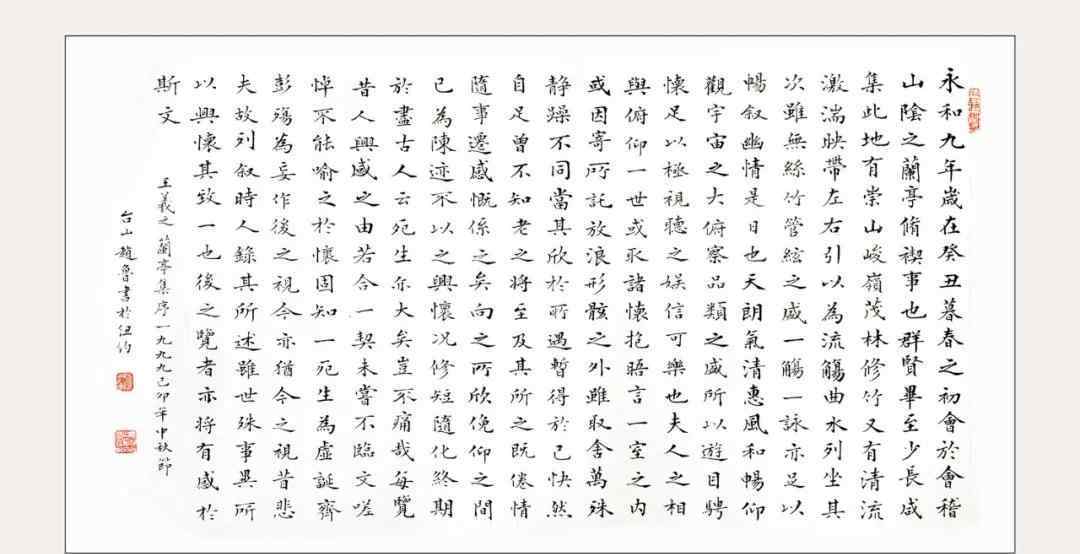 永和九年歲在癸丑暮春之初會於會稽
山陰之蘭亭脩禊事也群賢畢至少長咸
集此地有崇山峻嶺茂林修竹又有清流
激湍映帶左右引以為流觴曲水列坐其
次雖無絲竹管絃之盛一觴一詠亦足以
暢叙幽情是日也天朗氣清惠風和暢仰
觀宇宙之大俯察品類之盛所以遊目騁
懷足以極視聽之娛信可樂也夫人之相
與俯仰一世或取諸懷抱晤言一室之內
或因寄所託放浪形骸之外雖取舍萬殊
静躁不同當其欣於所遇暫得於己快然
自足曾不知老之將至及其所之既倦情
隨事遷感慨係之矣向之所欣俛仰之間
已為陳迹不以之興懷况修短隨化終期
於盡古人云死生亦大矣豈不痛哉每覽
昔人興感之由若合一契未嘗不臨文嗟
悼不能喻之於懷固知一死生為虛誕齊
彭殤為妄作後之視今亦猶今之視昔悲
夫故列叙時人錄其所述雖世殊事異所
以興懷其致一也後之覽者亦將有感於
斯文
王羲之蘭亭集序一九九九己卯年中秋節
台山趙魯書於纽约